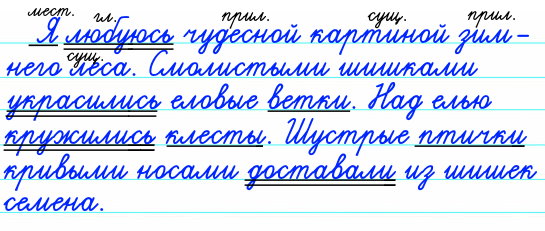 мест. гл. прил. сущ. прил.
Я любуюсь чудесной картиной зим-
сущ.
него леса. Смолистыми шишками
украсились еловые ветки. Над елью
кружились клесты. Шустрые птички
кривыми носами доставали из шишек
семена.